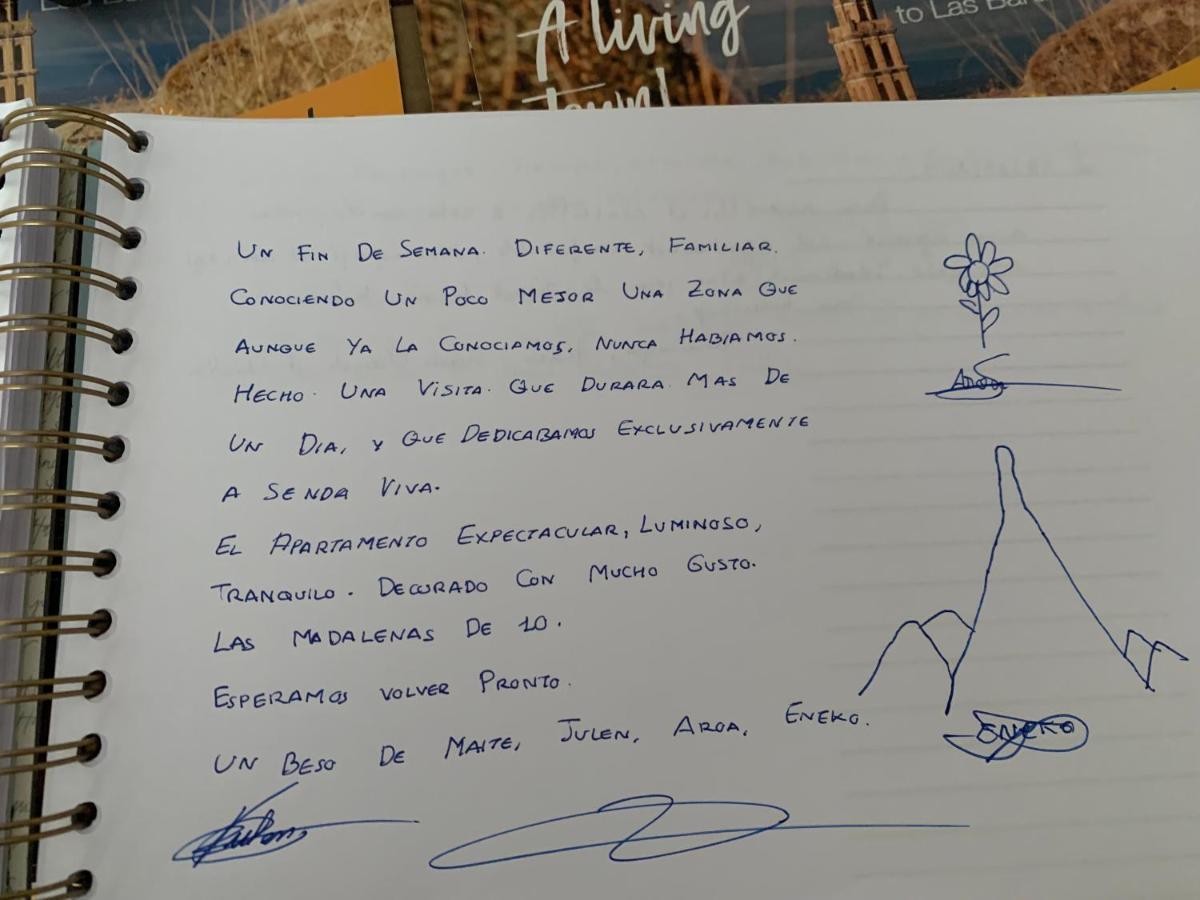 A living
town!
to Las Bar
UN FIN DE SEMANA. DIFERENTE, FAMILIAR.
CONOCIENDO UN POCO MEJOR UNA ZONA QUE
AUNQUE YA LA CONOCIAMOS, NUNCA HABIAMOS.
HECHO. UNA VISITA. QUE DURARA MAS DE
UN DIA, Y QUE DEDICABAMOS EXCLUSIVAMENTE
A SENDA VIVA.
EL APARTAMENTO EXPECTACULAR, LUMINOSO,
TRANQUILO. DECORADO CON MUCHO GUSTO.
LAS MADALENAS DE 10.
ESPERAMOS VOLVER PRONTO.
UN BESO DE MAITE, JULEN, AROA, ENEKO.
ENEKO